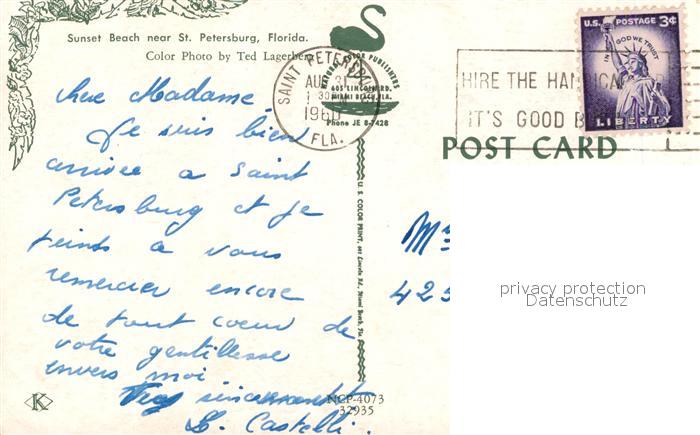 Sunset Beach near St. Petersburg, Florida.
Color Photo by Ted Lagerberg
605 LINCOLN RD.
MIAMI BEACH, FLA.
Phone JE 8-7428
SAINT PETERSBURG
AUG 31
1960
FLA.
HIRE THE HANDICAPPED
IT'S GOOD B
U.S. POSTAGE 3¢
IN GOD WE TRUST
LIBERTY
POST CARD
Chere Madame
Je suis bien
arrivée a Saint
Petersburg et je
teints a vous
remercier encore
de tout coeur de
votre gentillesse
envers moi
Très sincerement
L. Castelli.
U. S. COLOR PRINT, 605 Lincoln Rd., Miami Beach, Fla.
Mrs
425
privacy protection
Datenschutz
K
NCP-4073
32935